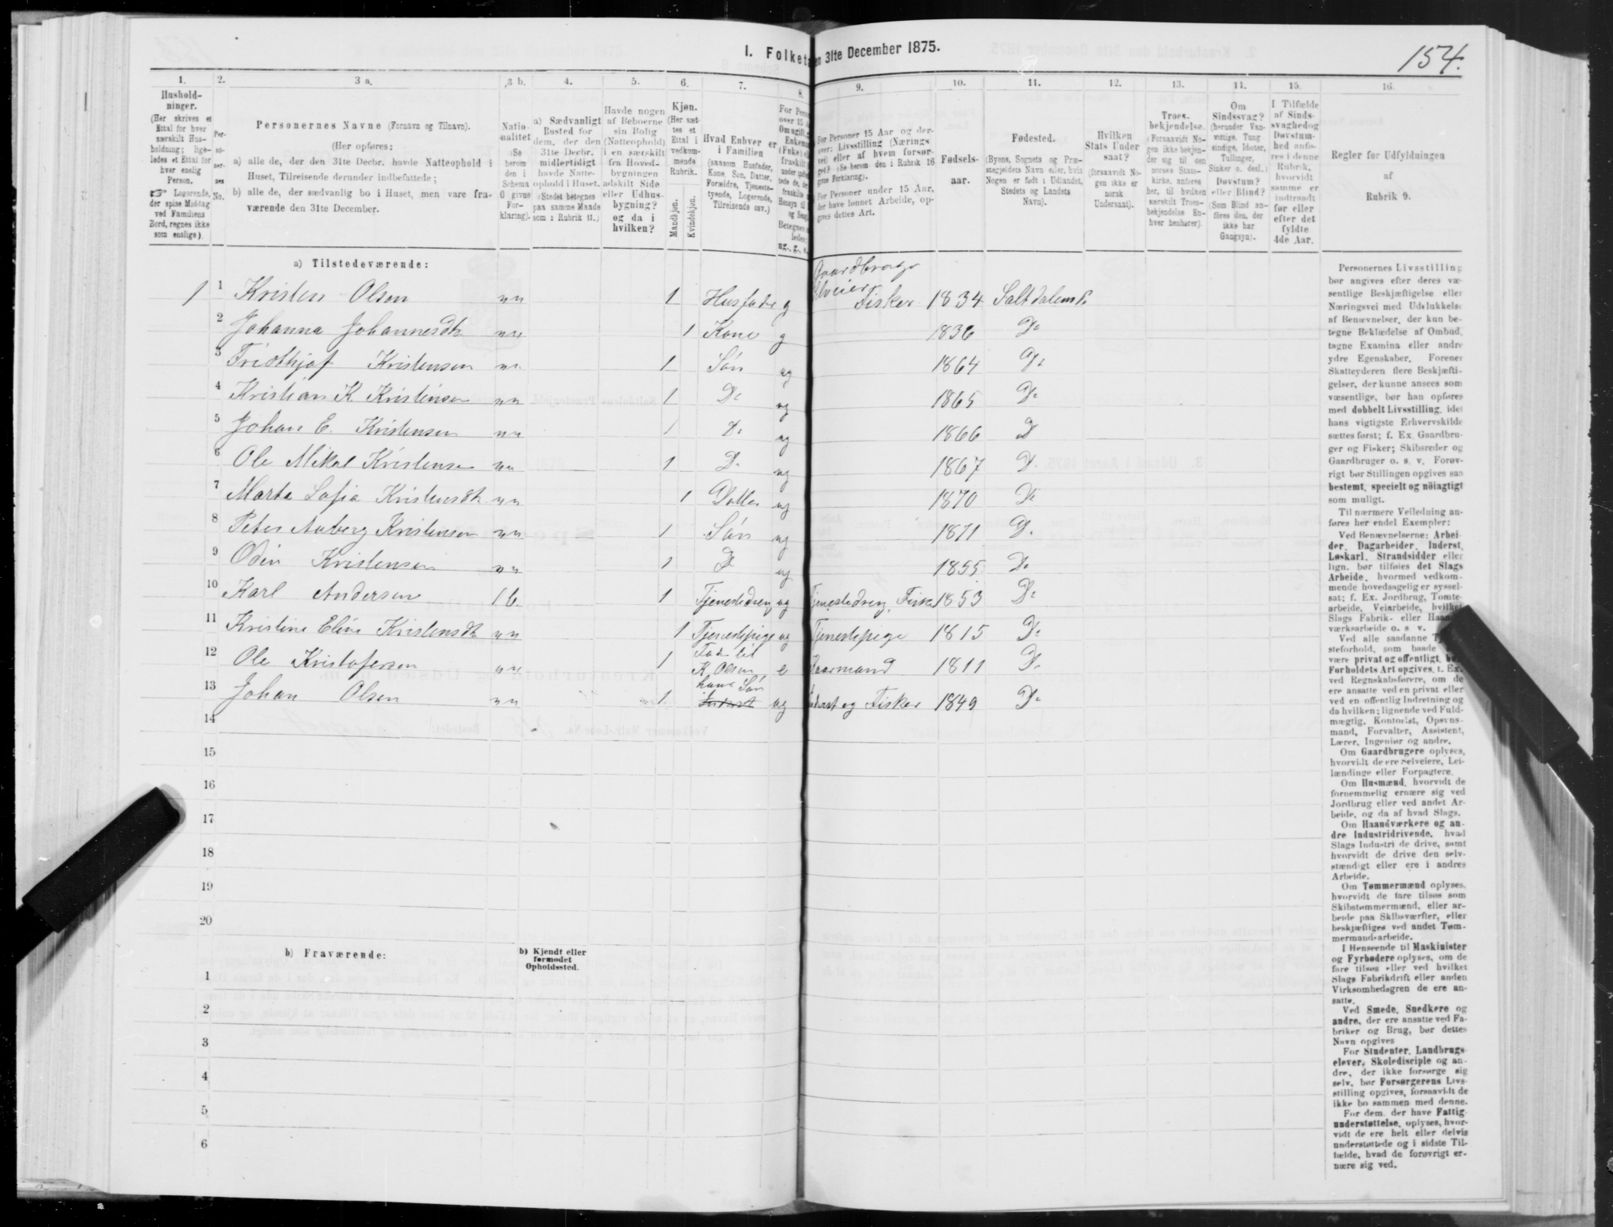 154.
I. Folketa en 31te December 1875.
1. 2. 3 a. 3 b. 4. 5. 6. 7. 8. 9. 10. 11. 12. 13. 14. 15. 16.
Hushold-
ninger.
(Her skrives et
Ettal for hver
særskilt Hus-
holdning; lige-
ledes et Ettal for
hver enslig
Person.
☞ Logerende,
der spise Middag
ved Familiens
Bord, regnes ikke
som enslige).
Per-
so-
ner-
nes
No.
Personernes Navne (Fornavn og Tilnavn).
(Her opføres:
a) alle de, der den 31te Decbr. havde Natteophold i
Huset, Tilreisende derunder indbefattede;
b) alle de, der sædvanlig bo i Huset, men vare fra-
værende den 31te December.
Natio-
nalitet
(Se
herom
den i
Schema
6 givne
For-
klaring).
a) Sædvanligt
Bosted for
dem, der den
31te Decbr.
midlertidigt
havde Natte-
ophold i Huset.
(Stedet betegnes
paa samme Maade
som i Rubrik 11.)
Havde nogen
af Beboerne
sin Bolig
(Natteophold)
i en særskilt
fra Hoved-
bygningen
adskilt Side
eller Udhus-
bygning?
og da i
hvilken?
Kjøn.
(Her sæt-
tes et
Ettal i
vedkom-
mende
Rubrik.
Mandkjøn.
Kvindekjøn.
Hvad Enhver er
i Familien
(saasom Husfader,
Kone, Søn, Datter,
Forældre, Tjeneste-
tyende, Logerende,
Tilreisende osv.)
For Personer 15 Aar og der-
over: Livsstilling (Nærings-
vei) eller af hvem forsør-
get? (Se herom den i Rubrik 16
givne Forklaring).
For Personer under 15 Aar,
der have lønnet Arbeide, op-
gives dettes Art.
Fødsels-
aar.
Fødested.
(Byens, Sognets og Præ-
stegjeldets Navn eller, hvis
Nogen er født i Udlandet,
Stedets og Landets
Navn).
Hvilken
Stats Under
saat?
(forsaavidt No-
gen ikke er
norsk
Undersaat).
Troes-
bekjendelse.
(Forsaavidt No-
gen ikke bekjen-
der sig til den
norske Stats-
kirke, anføres
her, til hvilken
særskilt Troes-
bekjendelse En-
hver henhører).
Om
Sindssvag?
(herunder Van-
vittige, Tung
sindige, Idioter,
Tullinger,
Sinker o. desl.)
Døvstum?
eller Blind?
(Som Blind an-
føres den, der
ikke har
Gangsyn).
I Tilfælde
af Sinds-
svaghed og
Døvstum-
hed anfø-
res i denne
Rubrik,
hvorvidt
samme er
indtraadt
før eller
efter det
fyldte
4de Aar.
Regler for Udfyldningen
af
Rubrik 9.
a) Tilstedeværende:
Gaardbruger
Selveier
1 1 Kristen Olsen nn 1 Husfader g Fisker 1834 Saltdalens P.
2 Johanna Johannesdtr nn 1 Kone g 1836 Do
3 Fridthjof Kristensen nn 1 Søn ug 1864 Do
4 Kristian K. Kristensen nn 1 Do ug 1865 Do
5 Johan E. Kristensen nn 1 Do ug 1866 D
6 Ole Mikal Kristensen nn 1 D. ug 1867 D.
7 Marta Sofia Kristensdtr nn 1 Datter ug 1870 Do
8 Peter Aaberg Kristensen nn 1 Søn ug 1871 D.
9 Odin Kristensen nn 1 D ug 1855 Do
10 Karl Andersen 1 b 1 Tjenestedreng ug Tjenestedreng, Fisker 1853 Do
11 Kristine Elina Kristensdtr nn 1 Tjenestepige ug Tjenestepige 1815 Do
12 Ole Kristofersen nn 1 Fader til K. Olsen e Kaarmand 1811 D.
13 Johan Olsen nn 1 hans Søn ug Inderst og Fisker 1849 Do
14
15
16
17
18
19
20
b) Fraværende:
b) Kjendt eller
formodet
Opholdssted.
1
2
3
4
5
6
Personernes Livsstilling
bør angives efter deres væ-
sentlige Beskjæftigelse eller
Næringsvei med Udelukkelse
af Benævnelser, der kun be-
tegne Beklædelse af Ombud,
tagne Examina eller andre
ydre Egenskaber. Forener
Skatteyderen flere Beskjæfti-
gelser, der kunne ansees som
væsentlige, bør han opføres
med dobbelt Livsstilling, idet
hans vigtigste Erhvervskilde
sættes først; f. Ex. Gaardbru-
ger og Fisker; Skibsreder og
Gaardbruger o. s. v. Forøv-
rigt bør Stillingen opgives saa
bestemt, specielt og nöiagtigt
som muligt.
Til nærmere Veiledning an-
føres her endel Exempler:
Ved Benævnelserne: Arbei-
der, Dagarbeider, Inderst,
Løskarl, Strandsidder eller
lign. bør tilføies det Slags
Arbeide, hvormed vedkom-
mende hovedsagelig er syssel-
sat; f. Ex. Jordbrug, Tomte-
arbeide, Veiarbeide, hvilket
Slags Fabrik- eller Haand-
værksarbeide o. s. v.
Ved alle saadanne
steforhold, som baade
være privat og offentligt, bør
Forholdets Art opgives, f. Ex.
ved Regnskabsførere, om de
ere ansatte ved en privat eller
ved en offentlig Indretning og
da hvilken; lignende ved Fuld-
mægtig, Kontorist, Opsyns-
mand, Forvalter, Assistent,
Lærer, Ingeniør og andre.
Om Gaardbrugere oplyses,
hvorvidt de ere Selveiere, Lei-
lændinge eller Forpagtere.
Om Husmænd, hvorvidt de
fornemmelig ernære sig ved
Jordbrug eller ved andet Ar-
beide, og da af hvad Slags.
Om Haandværkere og an-
dre Industridrivende, hvad
Slags Industri de drive, samt
hvorvidt de drive den selv-
stændigt eller ere i andres
Arbeide.
Om Tømmermænd oplyses,
hvorvidt de fare tilsøs som
Skibstømmermænd, eller ar-
beide paa Skibsværfter, eller
beskjæftiges ved andet Tøm-
mermandsarbeide.
I Henseende til Maskinister
og Fyrbødere oplyses, om de
fare tilsøs eller ved hvilket
Slags Fabrikdrift eller anden
Virksomhedsgren de ere an-
satte.
Ved Smede, Snedkere og
andre, der ere ansatte ved Fa-
briker og Brug, bør dettes
Navn opgives
For Studenter, Landbrugs-
elever, Skoledisciple og an-
dre, der ikke forsørge sig
selv, bør Forsørgerens Livs-
stilling opgives, forsaavidt de
ikke bo sammen med denne.
For dem, der have Fattig-
understøttelse, oplyses, hvor-
vidt de ere helt eller delvis
understøttede og i sidste Til-
fælde, hvad de forøvrigt er-
nære sig ved.